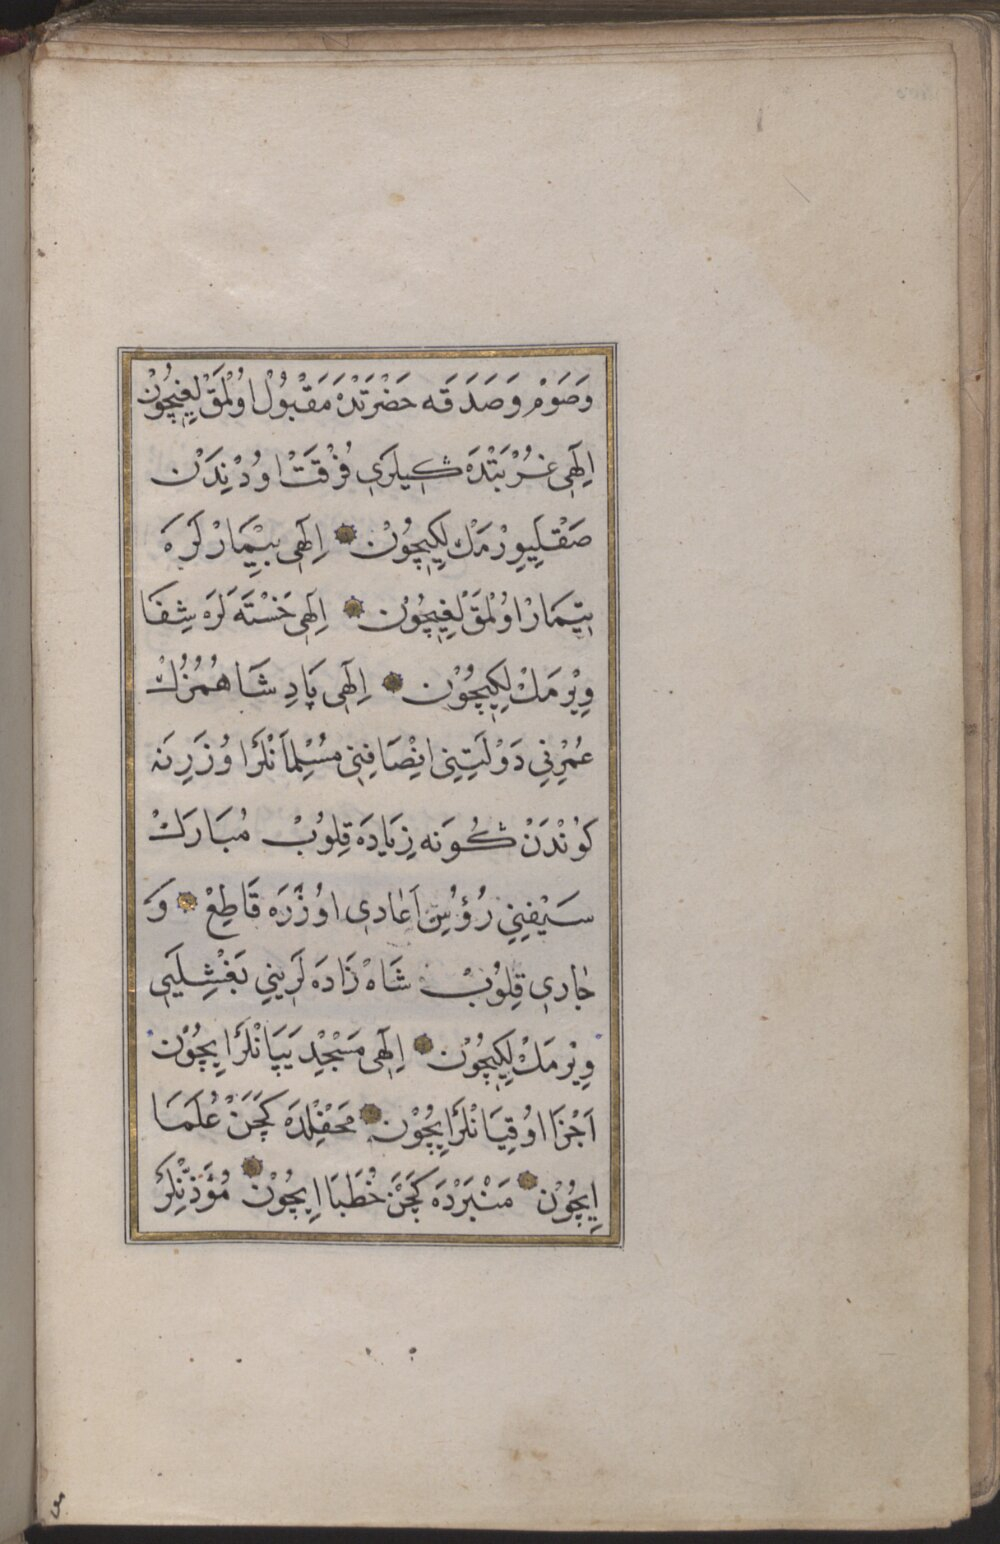 وَصَوْمْ وَصَدَقَه حَضْرَتَدَهْ مَقْبُولْ اوُلْمَقْ لِغِيچُونْ
اِلٰهِی غُرْبَتْدَه كَيلَرِی فُرْقَتْ اوُدْنِدَنْ
صَقْلِيِوِرْمَكْ لِكِيچُونْ اِلٰهِی بِيْمَارْلَرَه
بِيتِمَارْ اوُلْمَقْ لِغِيچُونْ اِلٰهِی خَسْتَه لَرَه شِفَا
وِيْرمَكْ لِكِيچُونْ اِلٰهِی پَادِشَاهُمُزُكْ
عُمْرِنِی دَوْلَتِنِی اِنْصَافِنِی مُسْلِمَانْلَرْ اوُزَرِنَه
كَوُنْدَنْ كُونَه زِيَادَه قِلوُبْ مُبَارَكْ
سَيْفِنِی رُؤُسِ اَعَادِی اوُزْرَه قَاطِعْ وَ
جَارِی قِلوُبْ شَاهْ زَادَه لَرِينِی بَغْشِلَيِی
وِيْرمَكْ لِكِيچُونْ اِلٰهِی مَسْجِدْ يَپَانْلَرْ اِيچُونْ
اَجْزَا اوُقِيَانْلَرْ اِيچُونْ مَحْفِلْدَه كَچَنْ عُلَمَا
اِيچُونْ مَنْبَرْدَه كَچَنْ خُطَبَا اِيچُونْ مُؤَذِّنْلَرْ